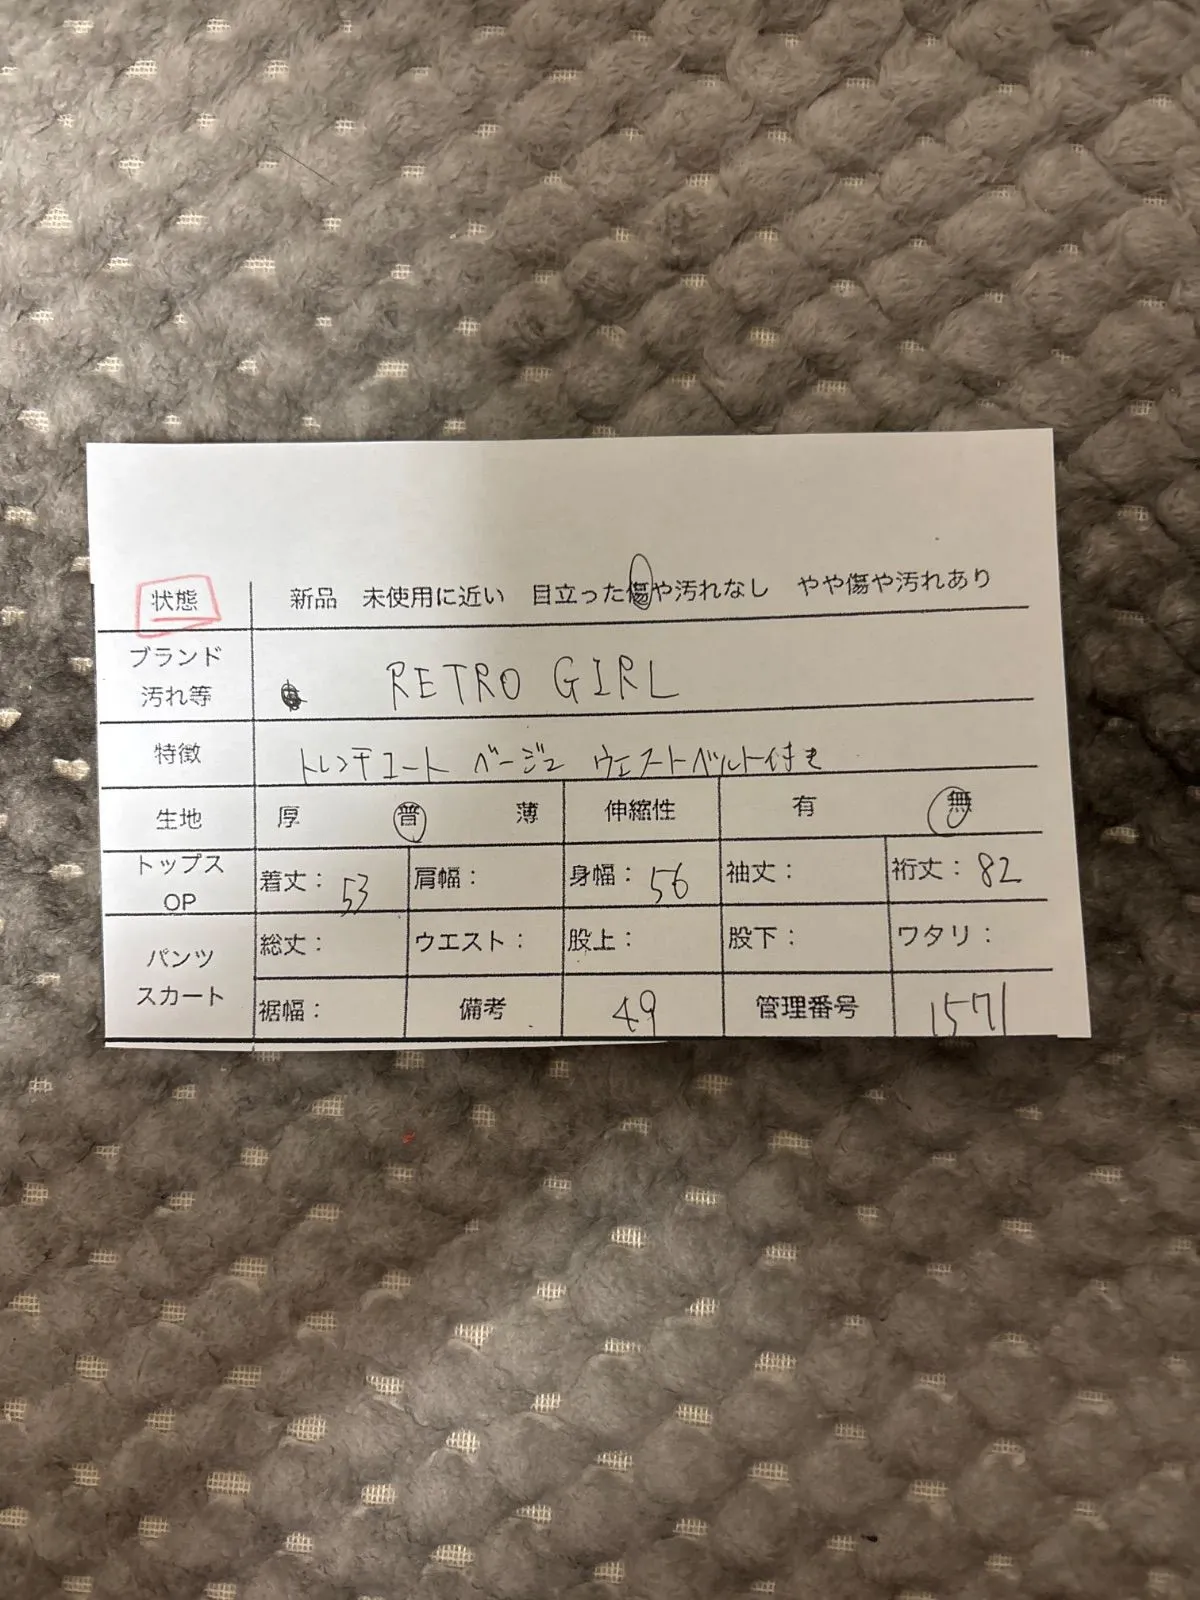 状態 新品 未使用に近い 目立った傷や汚れなし やや傷や汚れあり
ブランド
汚れ等 RETRO GIRL
特徴 トレンチコート ベージュ ウエストベルト付き
生地 厚 普 薄 伸縮性 有 無
トップス
OP 着丈：53 肩幅： 身幅：56 袖丈： 裄丈：82
パンツ
スカート 総丈： ウエスト： 股上： 股下： ワタリ：
裾幅： 備考 49 管理番号 1571